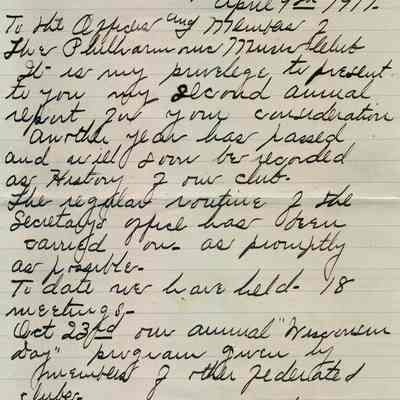 April 9th 1917.
To the Officers and Members of
The Philharmonic Music Club
It is my privelege to present
to you my second annual
report for your consideration
Another year has passed
and will soon be recorded
as History of our club.
The regular routine of the
Secretary's office has been
carried on as promptly
as possible.
To date we have held 18
meetings,
Oct 23rd our annual "Wisconsin
Day" program given by
members of other federated
clubs.